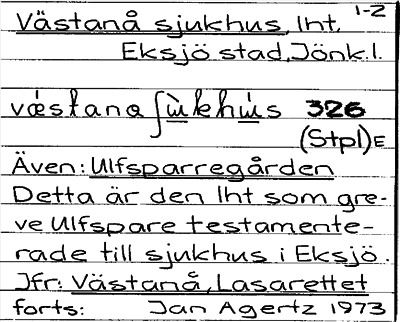 1-2
Västanå sjukhus, lht,
Eksjö stad, Jönk.l.
vǽstana ʃùkhu̇s 326
(Stpl)E
Även: Ulfsparregården
Detta är den lht som gre-
ve Ulfspare testamente-
rade till sjukhus i Eksjö.
Jfr: Västanå, Lasarettet
forts: Jan Agertz 1973